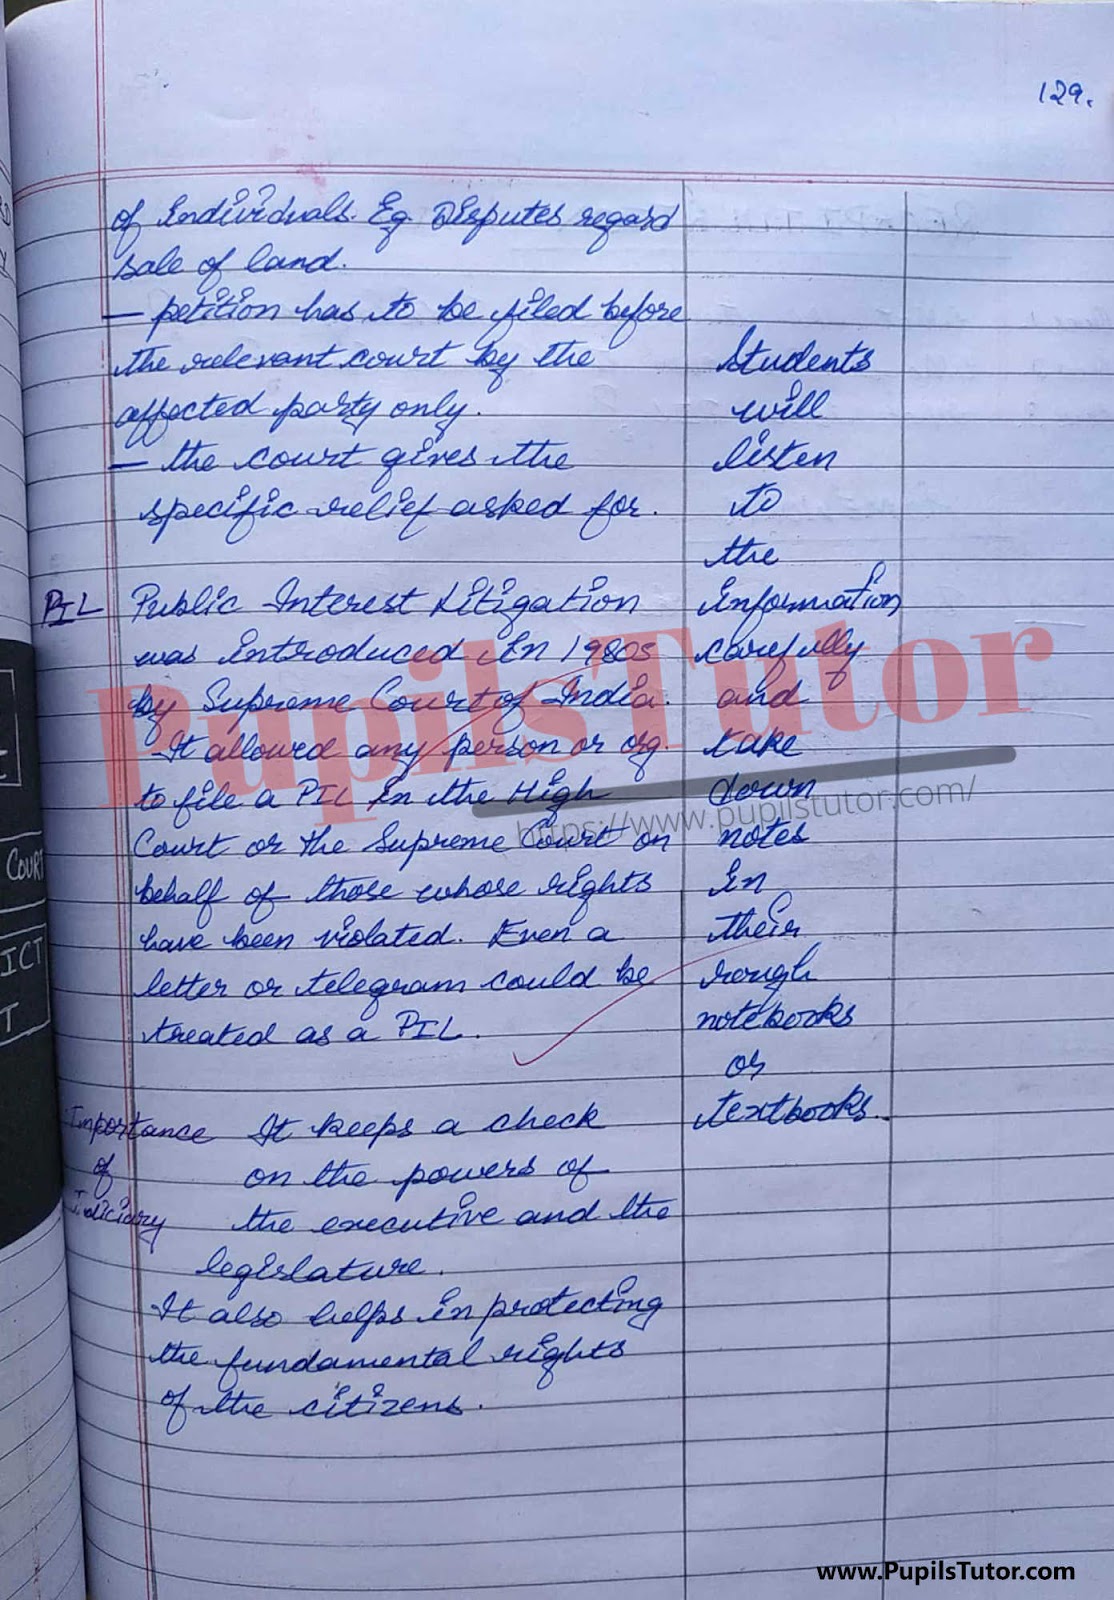 129.
of individuals. Eg. Disputes regard
sale of land.
— petition has to be filed before
the relevant court by the
affected party only.
— the court gives the
specific relief asked for.
PIL
Public Interest Litigation
was introduced in 1980s
by Supreme Court of India.
It allowed any person or org.
to file a PIL in the High
Court or the Supreme Court on
behalf of those whose rights
have been violated. Even a
letter or telegram could be
treated as a PIL.
Importance
of
Judiciary
It keeps a check
on the powers of
the executive and the
legislature.
It also helps in protecting
the fundamental rights
of the citizens.
Students
will
listen
to
the
information
carefully
and
take
down
notes
in
their
rough
notebooks
or
textbooks.
COURT
ICT
T
PupilsTutor
https://www.pupilstutor.com/
www.PupilsTutor.com